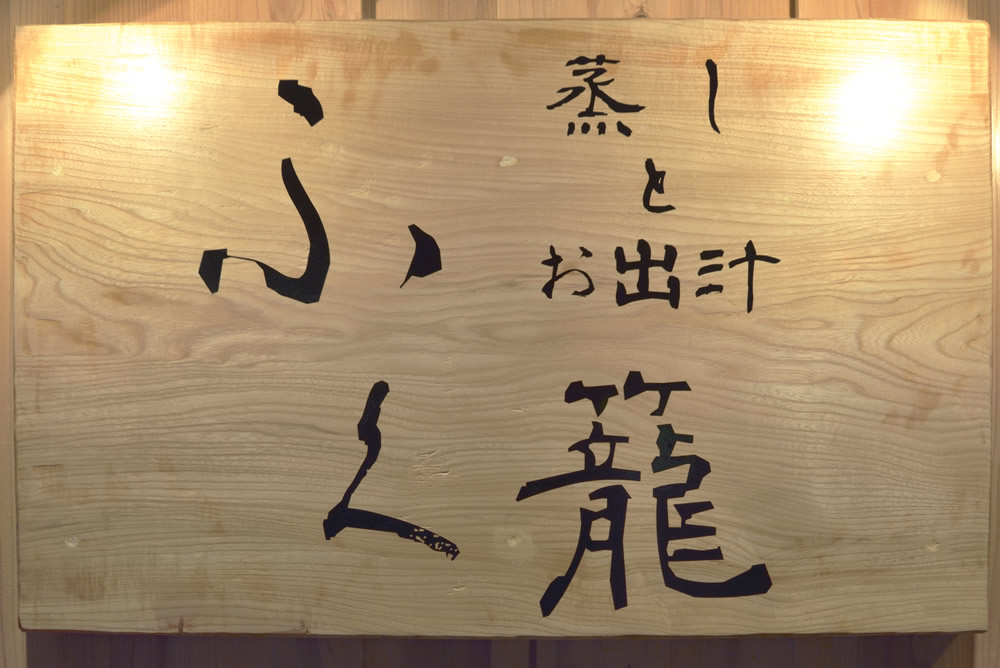 蒸し
と
お出汁
ふ
く籠